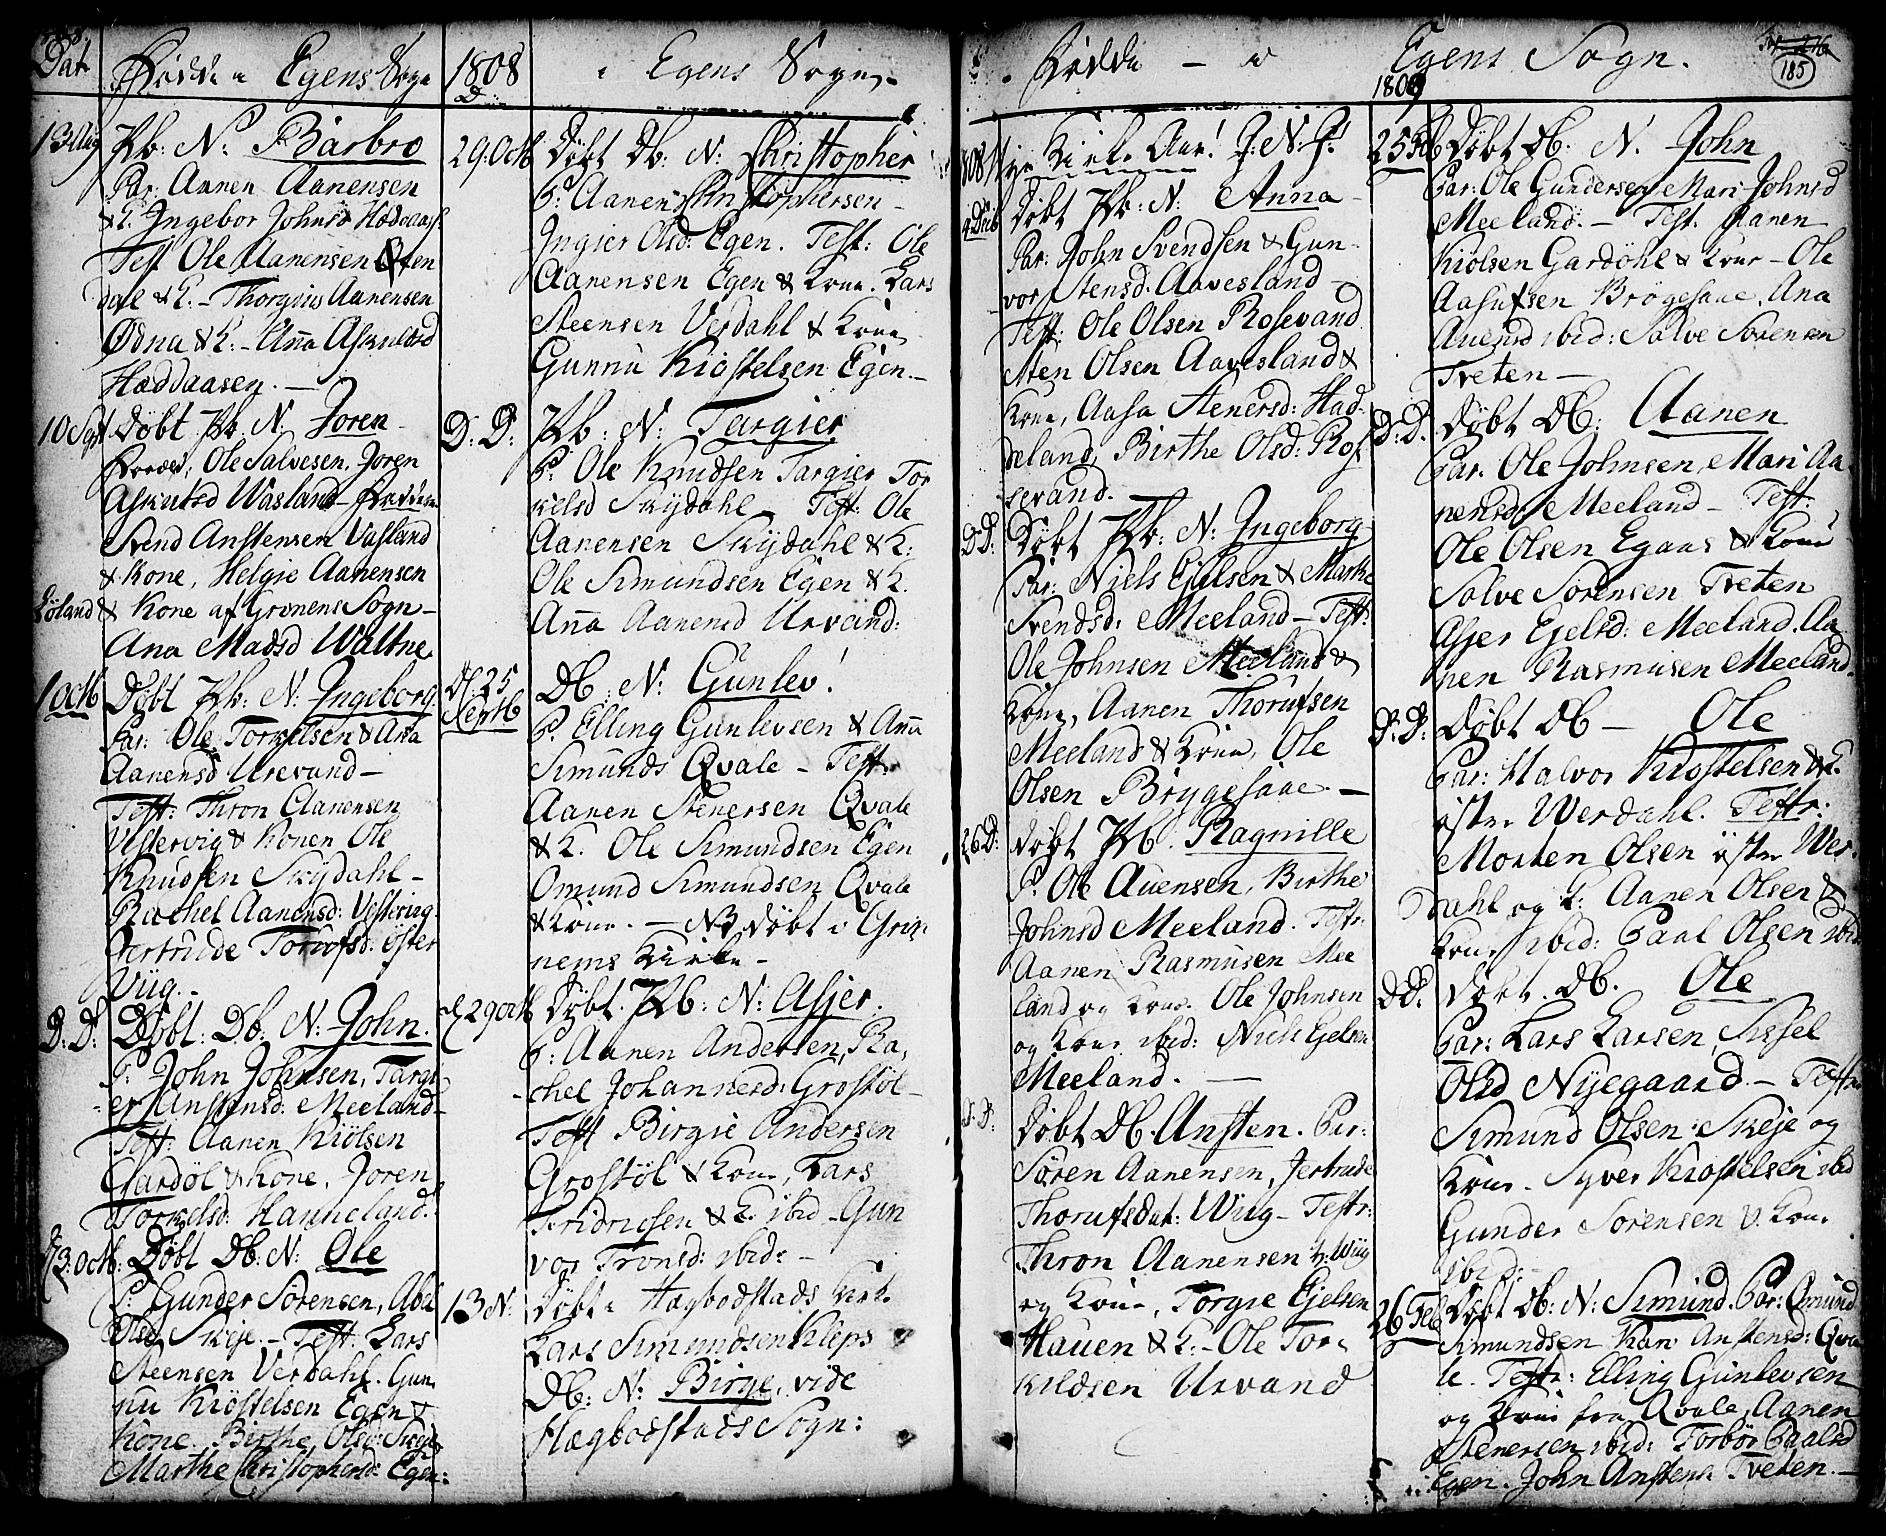 Dat
Fødde i Egens Sogn
13 Aug
Pb: N: Barbro
Par. Aanen Aanensen
& K. Ingebor Johnsd Hæddaas.
Test Ole Aanensen
dal & K. – Thorgius Aanensen
Ødna & K. – Aña Askuldsd
Hæddaasen. –
10 Sept Døbt Pb. N. Joren
Ole Salvesen, Joren
Askutsd Wasland –
Svend Anstensen Vasland
& Kone, Helgie Aanensen
& Kone af Grinens Sogn –
Ana Madsd Waltne
1 Octb Døbt Pb: N: Ingeborg
Par: Ole Torkelsen & Ana
Aanensd Urevand –
Test: Thron Aanensen
Vestervig & Konen Ole
Knudsen Skÿdahl –
Rachel Aanensd: Vestvig
Gertrude Torufsd: Øster
Viig. –
D: D: Døbt: Db: N: John.
P: John Johnsen, Targi
er Anstensd: Meeland –
Test: Aanen Kiölsen
Gardöl & Kone, Joren
Torkelsd: Hanneland.
23: Octb: Døbt Db: N: Ole
P: Gunder Sörensen, Abel
Olsd Skeje. – Test: Lars
Steensen Verdahl. Gun
nu Kiöstelsen Egen &
Kone. Birthe Olsd: Skeje
Marthe Christophersd: Egen:
1808 i Egens Sogn. –
29: Octb Døbt Db: N: Christopher
P: Aanen Christophersen –
Ingier Olsd: Egen. Test: Ole
Aanensen Egen & Kone. Lars
Steensen Verdahl & Kone
Gunnu Kiostelsen Egen. –
D: D: Pb: N: Targier
P: Ole Knudsen Targier Tor
kelsd Skÿdahl Test: Ole
Aanensen Skÿdahl & K:
Ole Simundsen Egen & K.
Aña Aanensd Urvand:
D. 25 Septb
Db: N: Gunlev!
P. Elling Gunlevsen & Aña
Simunds Qvale – Test.
Aanen Stenersen Qvale
& K. Ole Simundsen Egen
Omund Simundsen Qvale
& Kone. – NB døbt i Grin
nems Kirke –
D. 29 Octb Døbt. Pb: N: Asjer.
P: Aanen Andersen, Ra,
chel Johannesd: Grostöl –
Test Birgie Andersen
Grostöl & Kone, Lars
Fridricsen & K. ibid – Gun
vor Tronsd: ibid: –
13 N: Døbt i Hægbodstads Kirke
Lars Simundsen Kleps
Db: N: Birge, vide
Hægbodstads Sogn:
Fødde – i Egens Sogn.
185
1809
1808 Nye Kirke Aar! J: N: J:
4 Dcb Døbt Pb: N: Anna –
Par: John Svendsen & Gun
vor Stensd. Aavesland –
Test: Ole Olsen Rosevand
Sten Olsen Aavesland &
Kone, Aasa Stenersd: Had
deland, Birthe Olsd: Ros
sevand.
D D: Døbt Pb: N: Ingeborg
Par: Niels Ejelsen & Marthe
Svendsd: Meeland – Test:
Ole Johnsen Meeland &
Kone, Aanen Thorufsen
Meeland & Kone, Ole
Olsen Brygesaae –
26 D: Døbt Pb. Ragnille
P. Ole Auensen, Birthe
Johnsd Meeland. Testr:
Aanen Rasmusen Mee
land og Kone. Ole Johnsen
og Kone ibid: Niels Ejelsen
Meeland. –
D: D: Døbt Db. Ansten. Par:
Søren Aanensen, Jertrude
Thorufsdat: Wiig – Testr:
Thron Aanensen V: Wiig
og Kone, Torgie Ejelsen
Hauen & K: – Ole Tor
kildsen Urvand
25 Feb Døbt Db. N. John
Par: Ole Gundersen, Mari Johnsd
Meeland. – Test. Aanen
Kiölsen Gardöhl & Kone – Ole
Aasufsen Brögesaae, Ana
Auensd ibid: Salve Sörensen
Treten –
D: D. Døbt Db: Aanen
Par. Ole Johnsen, Mari Aa
nensd Meeland – Test:
Ole Olsen Egaas & Kone
Salve Sörensen Treten
Asjer Ejelsd: Meeland. Aa
nen Rasmusen Meeland.
D: D: Døbt Db – Ole
Par: Halvor Kiostelsen & K.
öster Werdahl. Testr:
Morten Olsen öster Wer
dahl og K: Aanen Olsen &
Kone ibid: Paal Olsen ibid
D D: Døbt. Db. Ole
Par: Lars Larsen, Sissel
Olsd Nÿegaard – Testr
Simund Olsen Skeje og
Kone. Syver Kiostelsen ibid
Gunder Sörensen & Kone
ibid: –
26 Feb Døbt Db: N: Simund. Par: Omund
Simundsen Kari Anstensd: Qva
le. Testr: Elling Gunlevsen
og Kone fra Qvale, Aanen
Stenersen ibid: Torbör Paalsd
Egen. John Anstens Treten. –